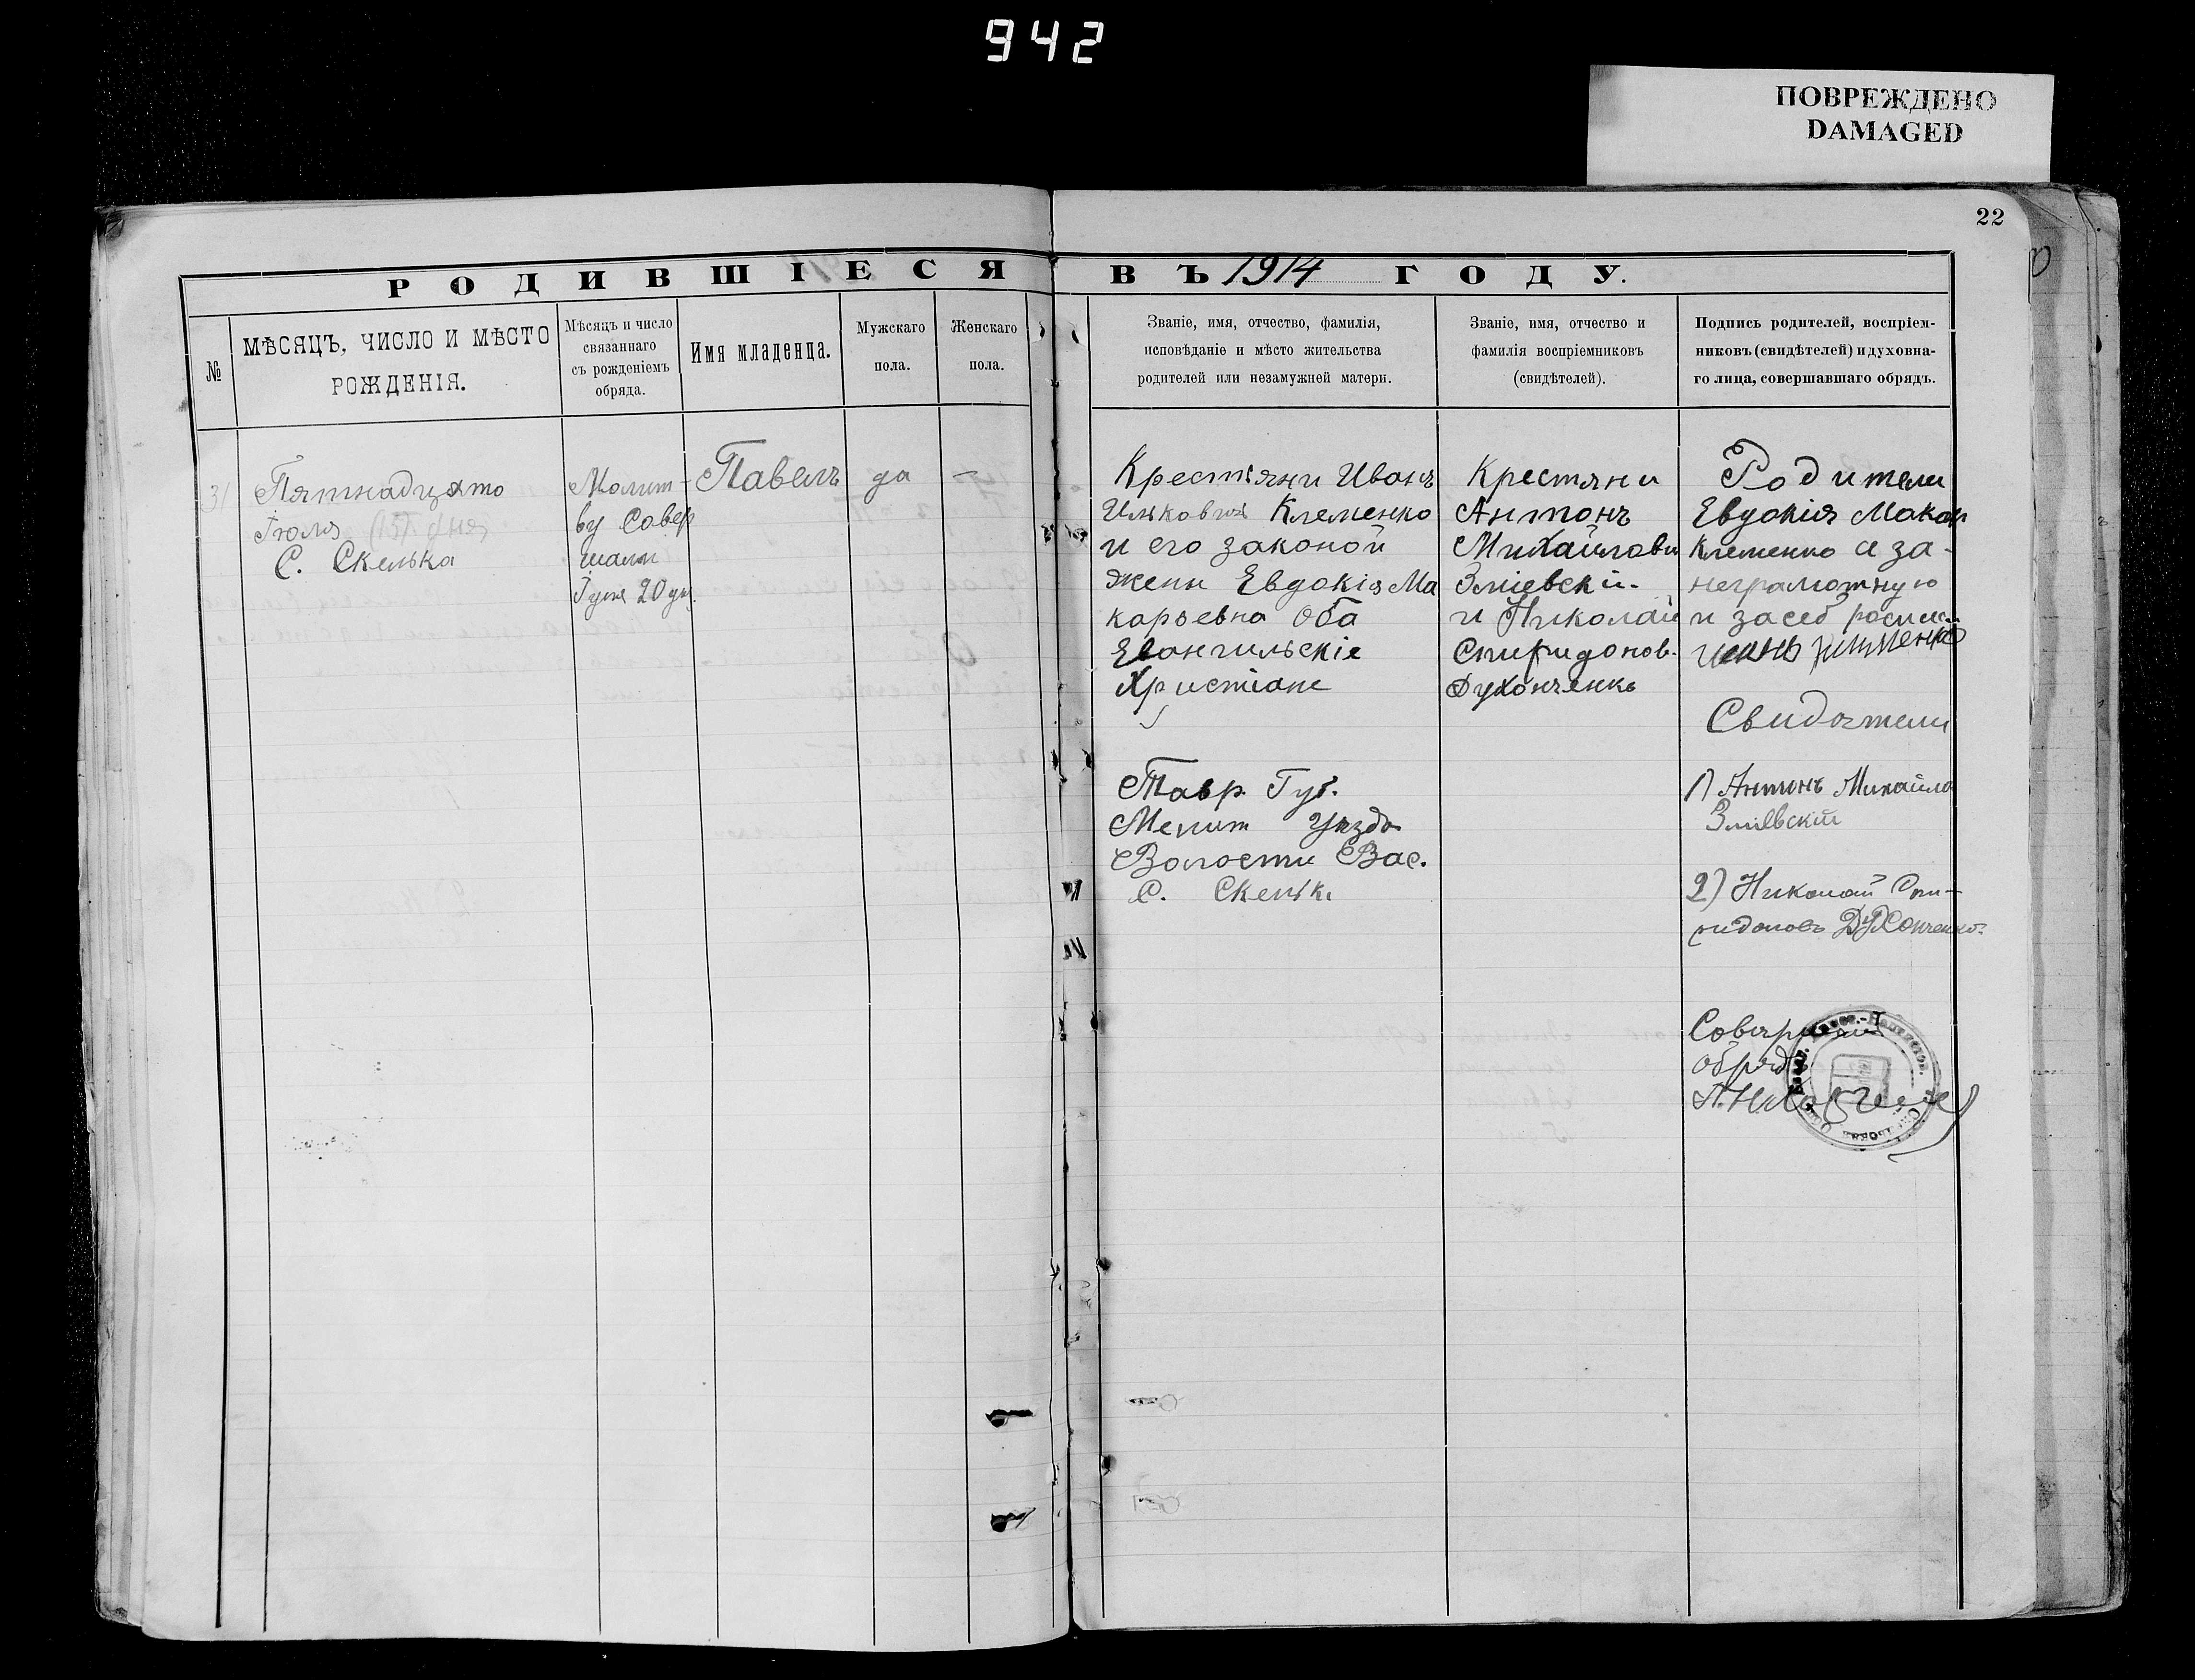 942
ПОВРЕЖДЕНО
DAMAGED
22
РОДИВШІЕСЯ ВЪ 1914 ГОДУ.
№
МѢСЯЦЪ, ЧИСЛО И МѢСТО
РОЖДЕНІЯ.
Мѣсяцъ и число
связаннаго
съ рожденіемъ
обряда.
Имя младенца.
Мужскаго
пола.
Женскаго
пола.
Званіе, имя, отчество, фамилія,
исповѣданіе и мѣсто жительства
родителей или незамужней матери.
Званіе, имя, отчество и
фамилія воспріемниковъ
(свидѣтелей).
Подпись родителей, воспріем-
никовъ (свидѣтелей) и духовна-
го лица, совершавшаго обрядъ.
31
Пятнадцято
Іюля (15) дня
С. Скелька
Молит-
ву Совер
шали
20
Павелъ
да
—
Крестьяни Иванъ
Илькович Клеменко
и его законой
жены Евдокія Ма
карьевна Оба
Евангильскіе
Христіане
Тавр. Губ.
Мелит Уезда
Волости Вас.
С. Скельки
Крестяни
Антонъ
Михайлови
Зміевскій-
и Николай
Спиридонов.
Духонченко
Родители
Евдокія Макар
Клеменко а за-
неграмотную
и засеб
Свидетели
1) Антонъ Михайло
Зміевскій
2) Николай Спи-
ридоновъ Духонченко.
Совершалъ
обрядъ